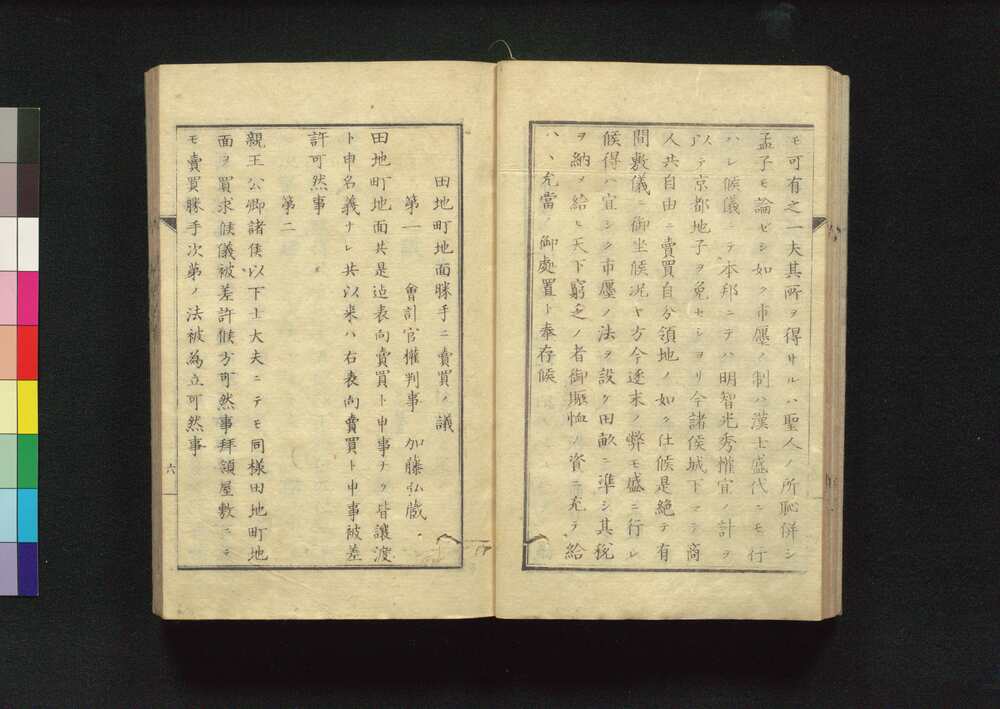 モ可有之一夫其所ヲ得サルハ聖人ノ所恥併シ
孟子モ論セシ如ク市廛ノ制ハ漢土盛代ニモ行
ハレ候儀ニテ本邦ニテハ明智光秀權宜ノ計ヲ
以テ京都地子ヲ免セシヨリ今諸侯城下マテ商
人共自由ニ賣買自分領地ノ如ク仕候是絶テ有
間敷儀ニ御坐候況ヤ方今逐末ノ弊モ盛ニ行レ
候得ハ宜シク市廛ノ法ヲ設ク田畝ニ準シ其稅
ヲ納メ給ヒ天下窮乏ノ者御賑恤ノ資ニ充テ給
ハヽ允當ノ御處置ト奉存候
田地町地面勝手ニ賣買ノ議
第一 會計官權判事 加藤弘蔵
田地町地面共是迠表向賣買ト申事ナク皆讓渡
ト申名義ナレ共以来ハ右表向賣買ト申事被差
許可然事
第二
親王公卿諸侯以下士大夫ニテモ同様田地町地
面ヲ買求候儀被差許候方可然事拜領屋敷ニテ
モ賣買勝手次第ノ法被為立可然事
六